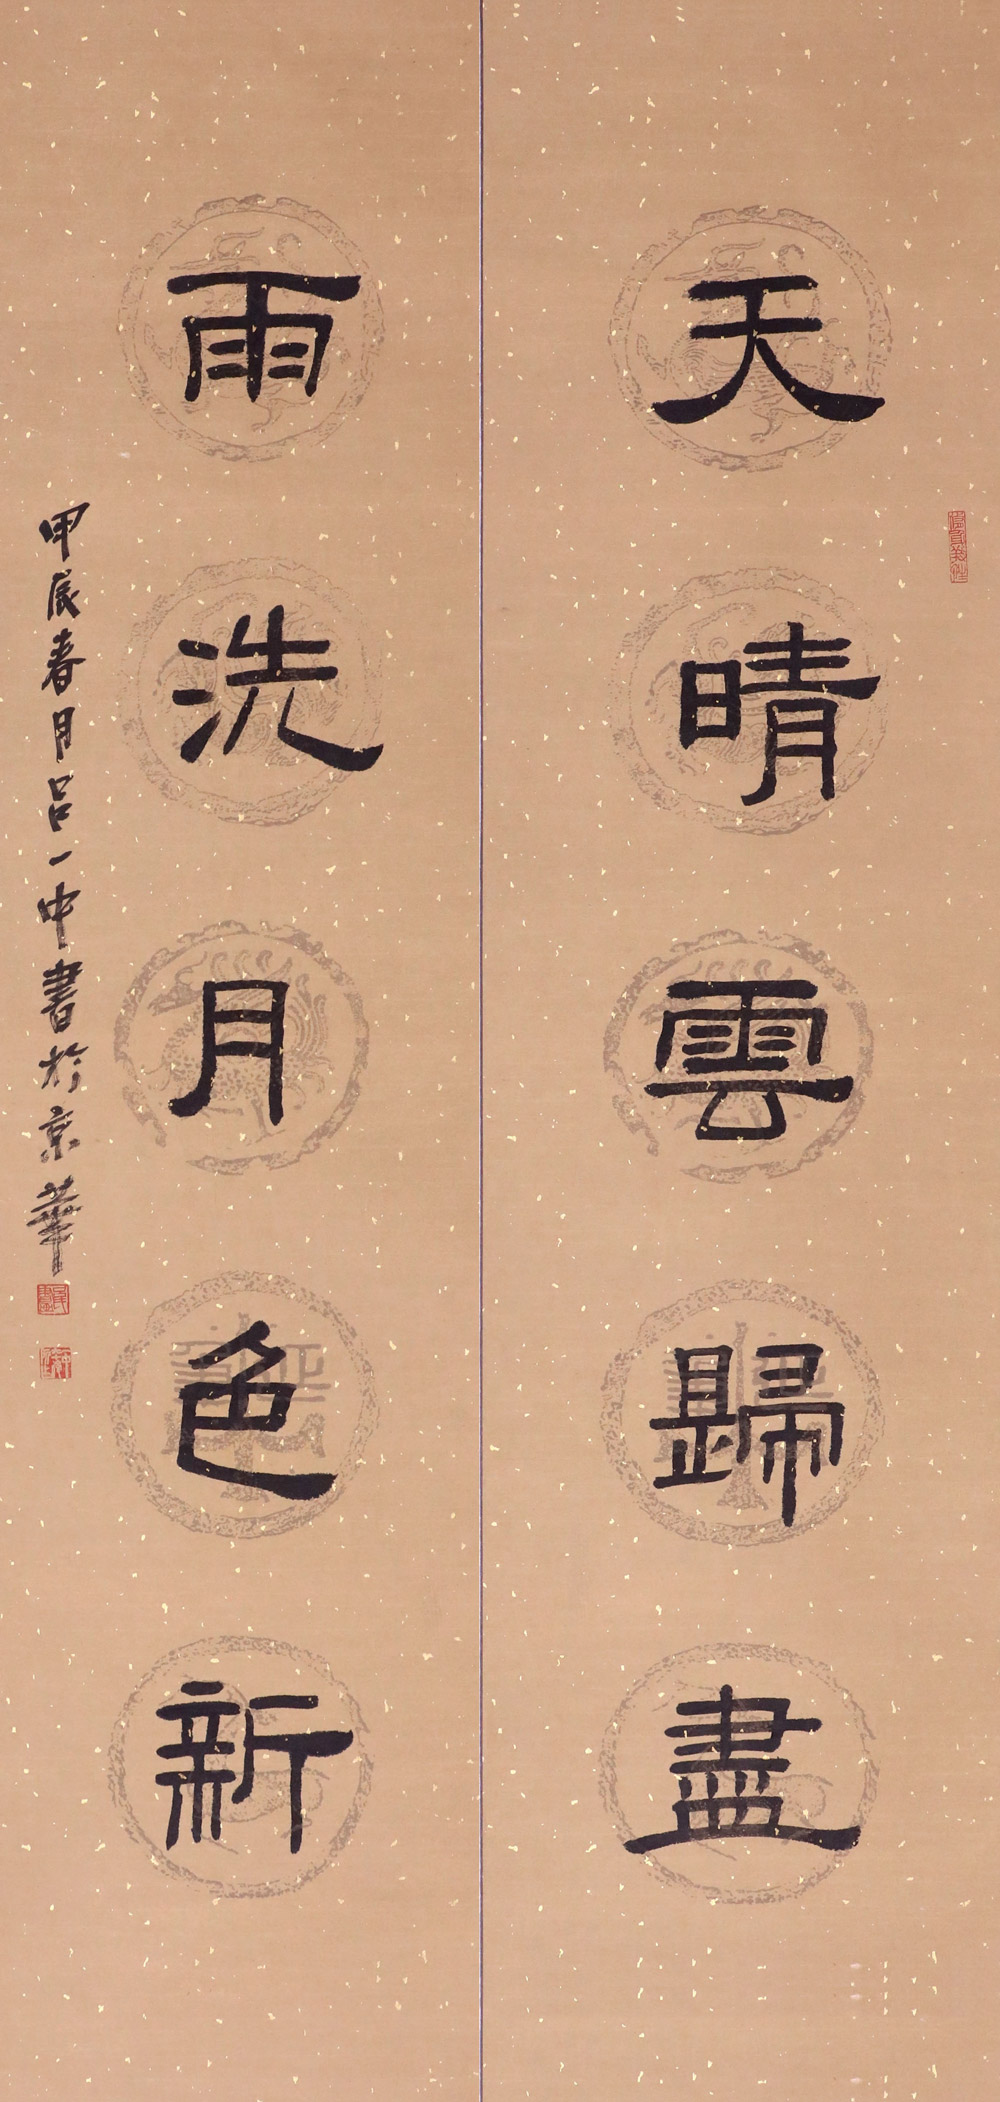 天晴雲歸盡
雨洗月色新
甲辰春月呂一中書於京華